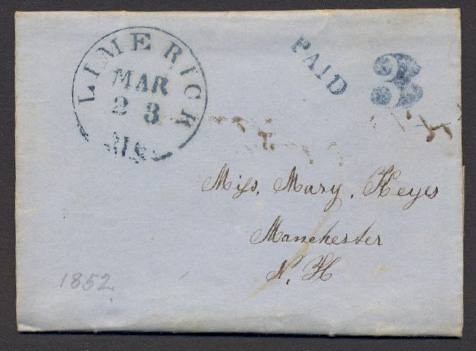 LIMERICK
MAR
23
PAID
3
Miss. Mary. Keyes
Manchester
N. H
1852